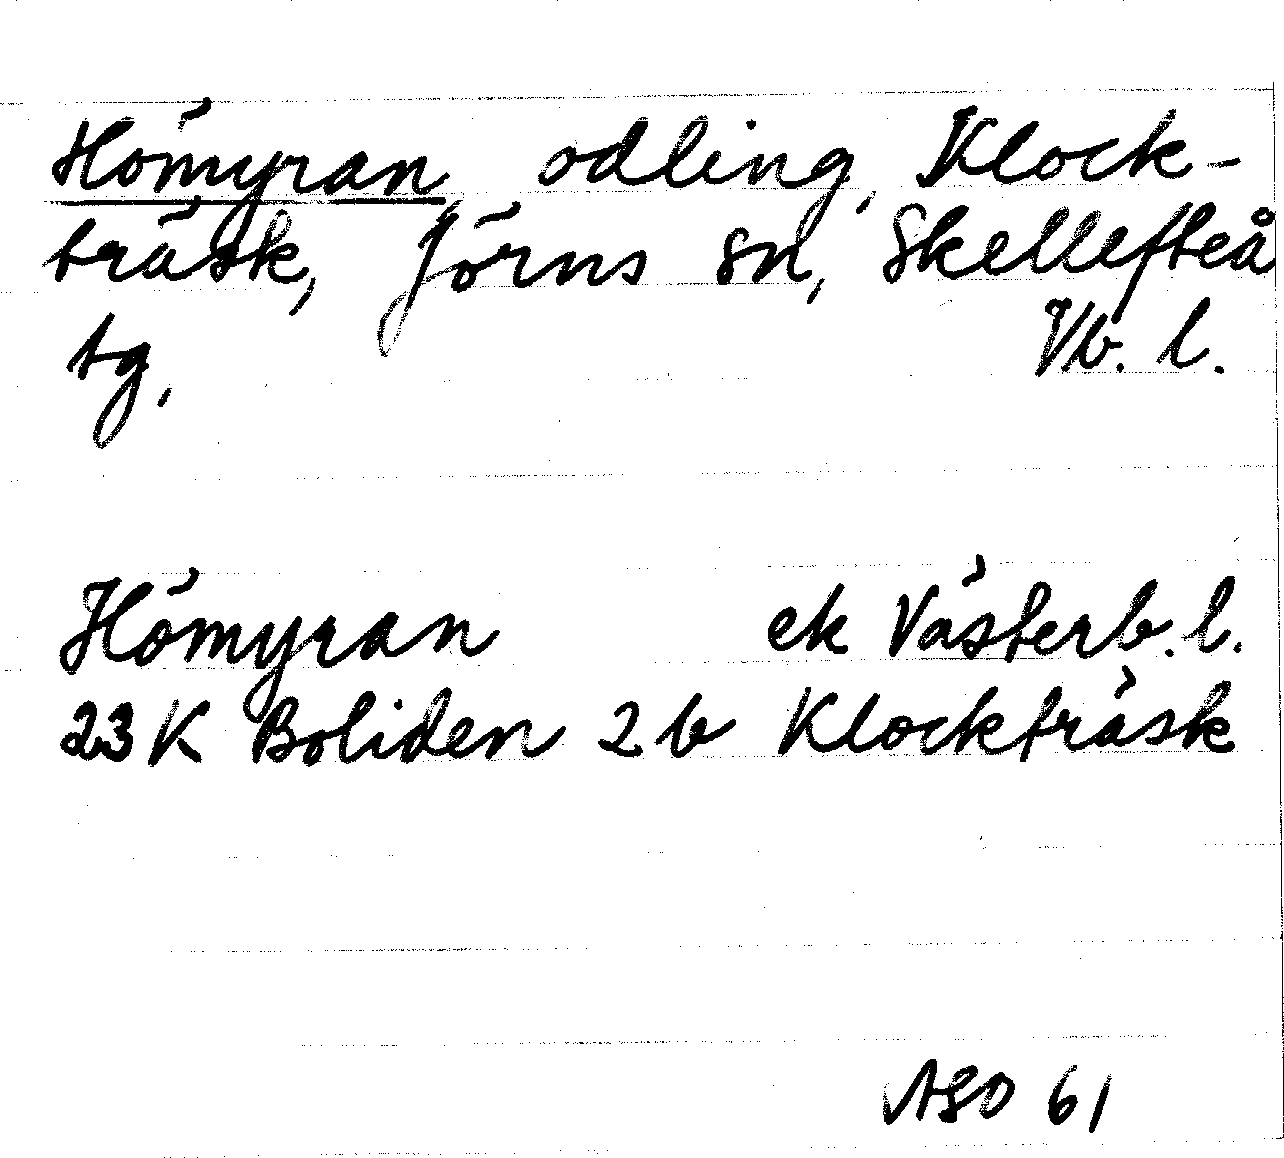 Hömyran, odling, Klock-
träsk, Jörns sn, Skellefteå
tg, Vb. l.
Hömyran ek Västerb. l.
23 K Boliden 2 b Klockträsk
ASO 61